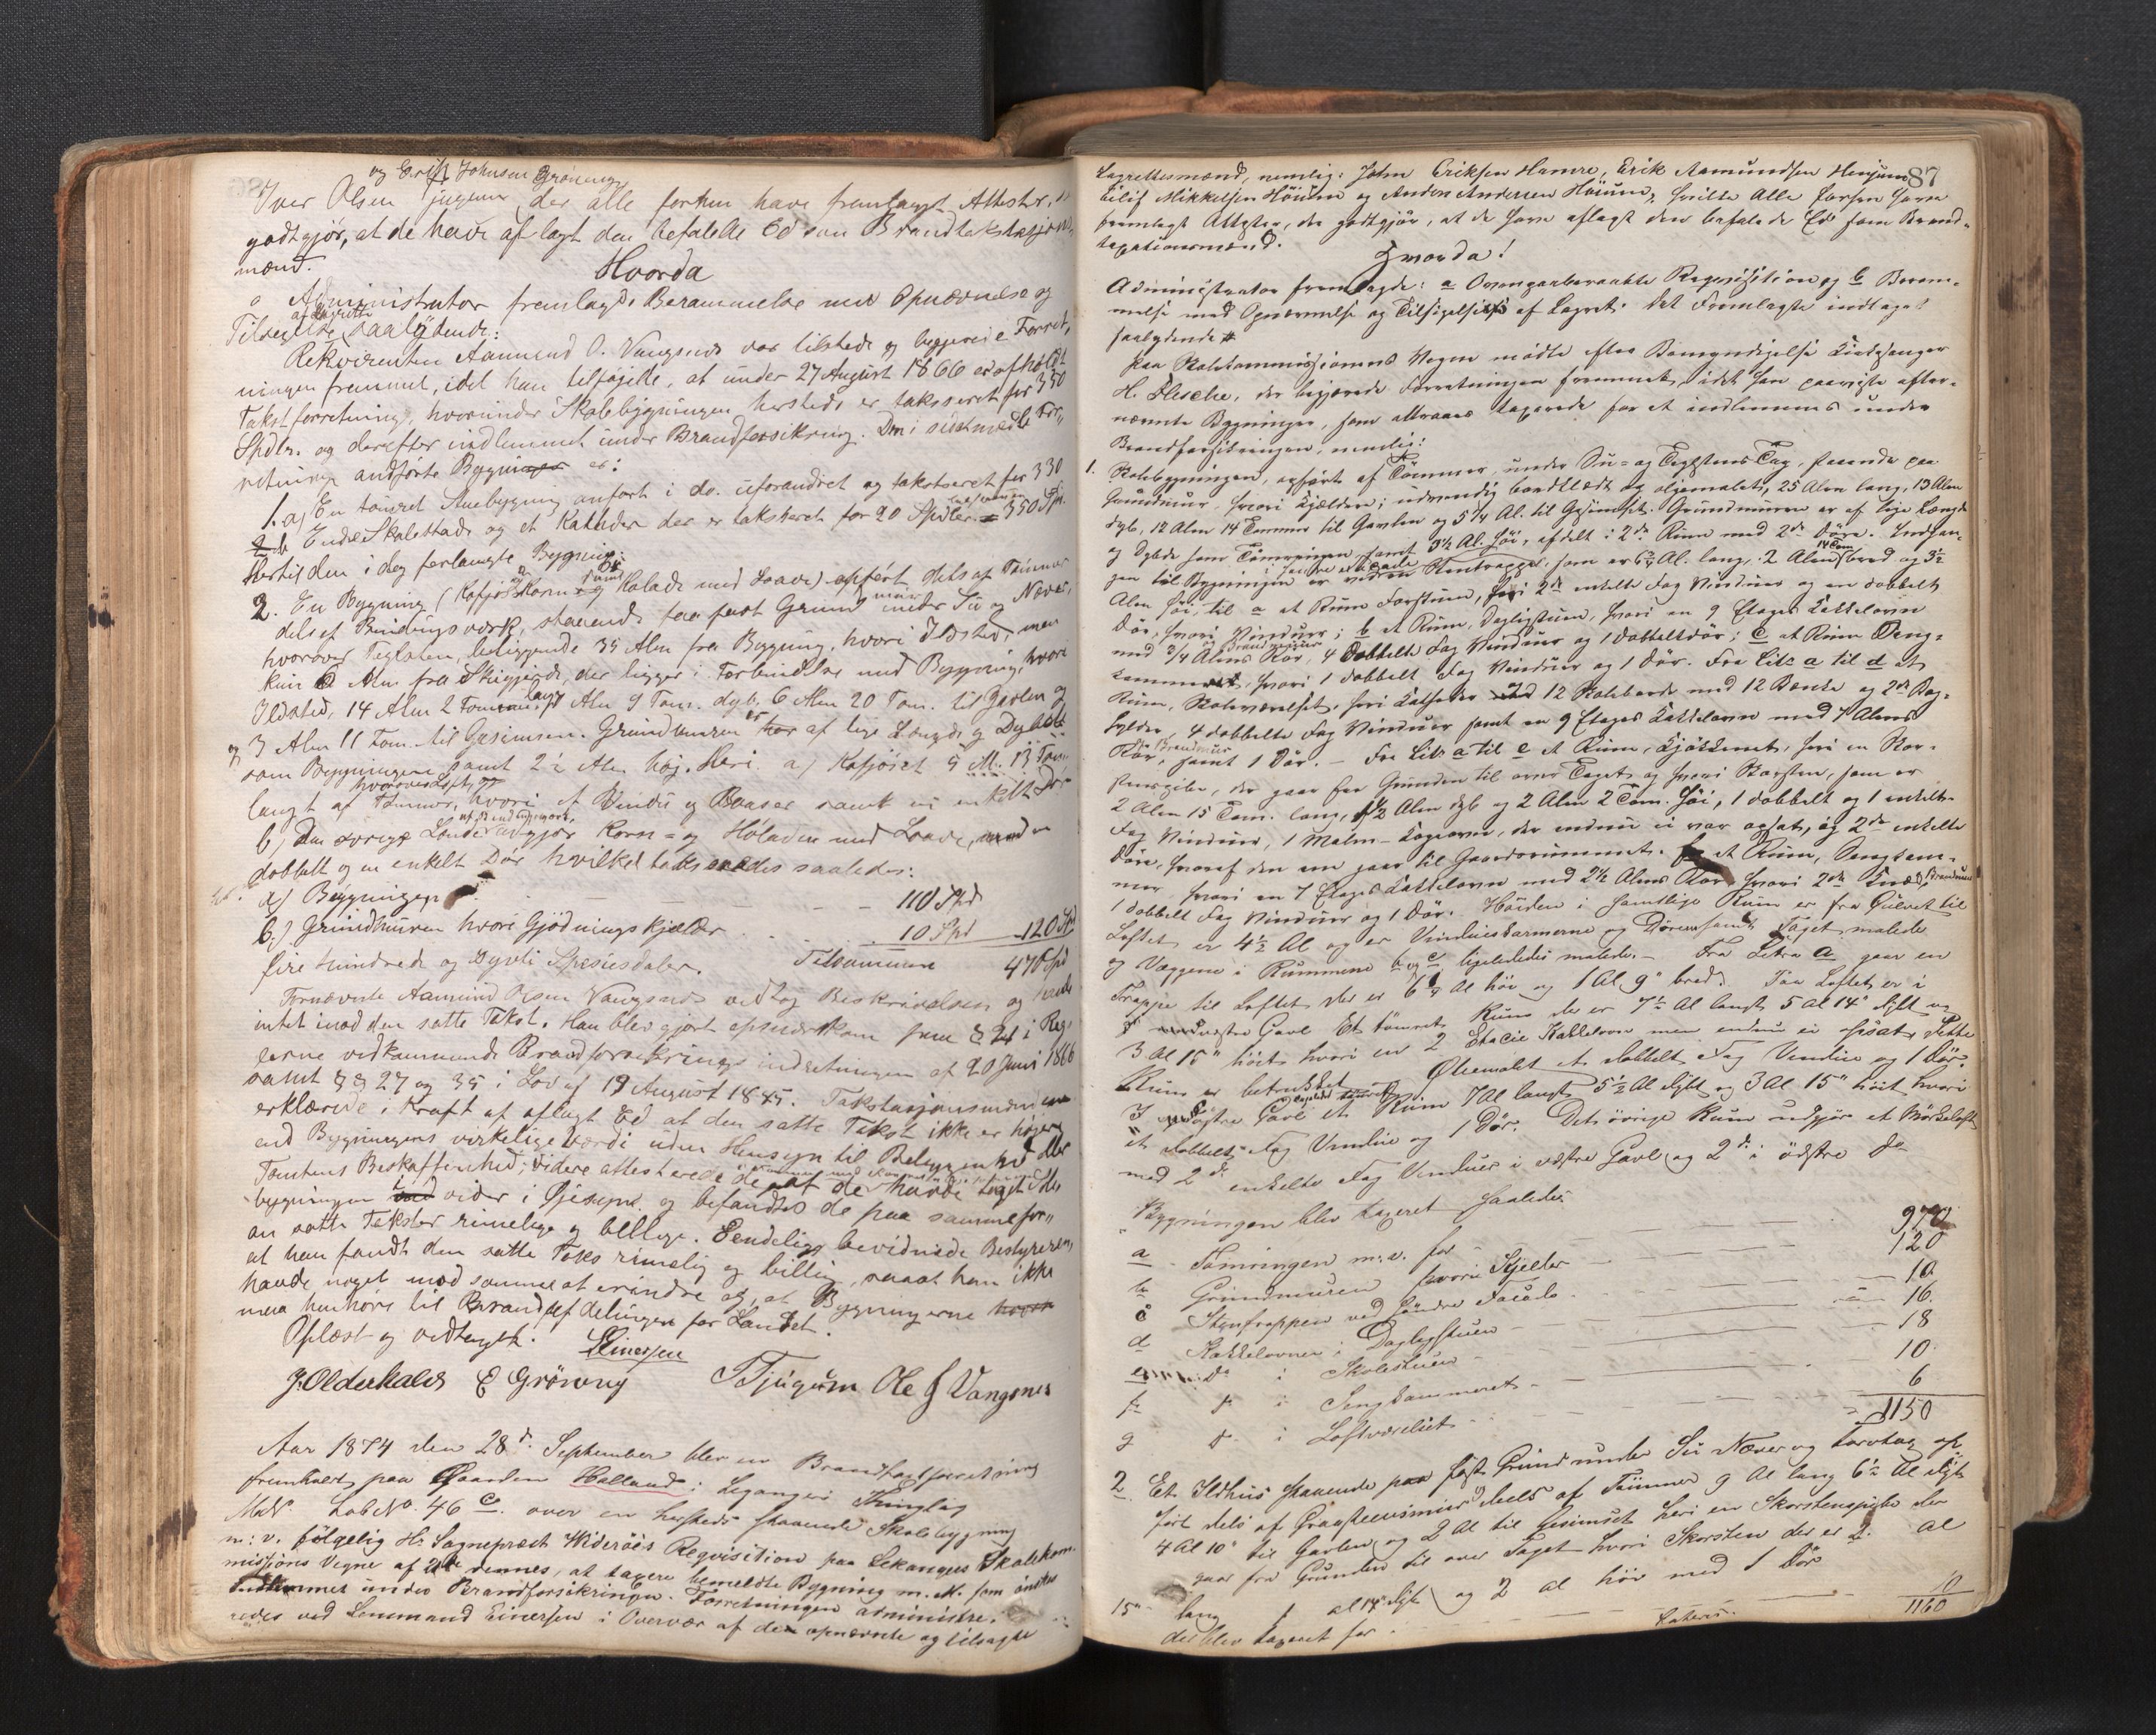 og Erik Johnsen Grøning
Iver Olsen Tjugum der alle forhen have fremlagt Attester,
godtgjør, at de have aflagt den befalede Ed som Brandtakstasjons-
mænd.
Hvorda
Administrator fremlagde Berammelse med Opnævnelse og
af Lagrette
Tilsigelse saalydende:
Rekvirenten Aamund O. Vangsnes var tilstede og begjerede Forret-
ningen fremmet, idet han tilføjede, at under 27 August 1866 er afholdt
Takstforretning, hvorunder Skolebygningen hersteds er taksseret for 350
Spdlr. og derefter indlemmet under Brandforsikring. Den i sidstnævnte For-
retning andførte Bygning er:
1. a) En tømret Stuebygning anført i do. uforandret og takstseret for 330
2 b Endel Skolestade og et Katheder der er taksseret for 20 Spdler = 350 Sp.
Hertil den i dag forlangte Bygning:
2. En Bygning (Kafjøs Korn- og Høladе med Laave) opført dels af Tømmer
dels af Bindingsværk, staaende paa fast Grund under Su og Næver,
hvorover Teglsten, beliggende 35 Alen fra Bygning, hvori Ildsted, men
kun Alen fra Skigjerde, der ligger i Forbindelse med Bygning, hvori
Ildsted, 14 Alen 2 Tommer lang Alen 9 Tom. dyb, 6 Alen 20 Tom. til Gavlen og
og 3 Alen 11 Tom. til Gesimsen. Grundmuren er af lige Længde og Dybde
som Bygningen samt 2½ Alen høj. Heri a) Kofjøset 5 Al. 13 Tom
langt af Tømmer, hvori et Vindu og Baaser samt en enkelt Dør
b) Den øvrige Lænde udgjør Korn- og Høladen med Laave, med en
dobbelt og en enkelt Dør hvilket taksseredes saaledes:
a) Bygningen 110 Spd
b.) Grundmuren hvori Gjødningskjælder 10 Spd 120 Spd
fire hundrede og Syvti Spesiesdaler. Tilsammen 470 Spd
Fornævnte Aamund Olsen Vangsnes vedtog Beskrivelsen og havde
intet imod den satte Takst. Han blev gjort opmærksom paa § 24 i Reg-
lerne vedkommende Brandforsikrings indretningen af 20 Juni 1866
samt §§ 27 og 35 i Lov af 19 August 1845. Takstasjonsmændene
erklærede i Kraft af aflagt Ed at den satte Takst ikke er højere
end Bygningens virkelige Værdi uden Hensyn til Beliggenhed eller
Tomtens Beskaffenhed; videre attesterede de, at de havde taget
bygningen i Øjesyn og befandtes de paa samme for-
an satte Takster rimelige og billige. Endelig bevidnede Bestyreren,
at han fandt den satte Takst rimelig og billig, saaat han ikke
havde noget mod samme at erindre og, at Bygningerne
maa henhøre til Brandafdelingen for Landet.
Oplæst og vedtaget. Einersen
J. Olderhalds E Grøning T Tjugum Ole J Vangsnes
Aar 1874 den 28de September blev en Brandtaxtforretning
fremholdt paa Gaarden Halland i Leganger Thinglag
MatN. LobNo. 46 c. over en hersteds staaende Skolebygning
m: v. følgelig Hr Sogneprest Widerøes Reqvisition paa Lekanger Skolekom-
missions Vegne af dennes, at taxere bemeldte Bygning m. M. som ønskes
indlemmet under Brandforsikringen. Forretningen administre-
redes ved Lensmand Einersen i Overvær af de opnævnte og tilsagte
87
Lagrettesmænd, nemlig: John Eriksen Hamre, Erik Aamundsen Henjum
Eilif Mikkelsen Høium og Anders Andersen Høium, hvilke Alle forhen have
fremlagt Attester, der godtgjør, at de have aflagt den befalede Ed som Brand-
taxationsmænd.
Hvorda!
Administrator fremlagde: a Ovenpaaberaabte Reqvisition og b Beram-
melse med Opnævnelse og Tilsigelse af Lagret. Det Fremlagte indtages
saalydende #
Paa Skolekommissionens Vegne mødte efter Bemyndigelse Kirkesanger
H. Flesche, der begjærede Forretningen fremmet, idet han paaviste efter-
nævnte Bygninger, som attraaes taxerede for at indlemmes under
Brandforsikringen, nemlig:
1. Skolebygningen, opført af Tømmer, under Su- og Teglstens Tag, staaende paa
Grundmuur, hvori Kjældere; udvendig bordklædt og oljemalet, 25 Alen lang, 13 Alen
dyb, 12 Alen 14 Tommer til Gavlen og 5¼ Al. til Gesimset. Grundmuren er af lige Længde
og Dybde som Tømringen, samt 3½ Al. høi, afdelt i 2de Rum med 2de Døre. Indgan-
gen til Bygningen er Stentrappe, som er 6¾ Al. lang, 2 Alen 14 Tom bred og 3½
Alen høi, til a et Rum Forstuen, hvori 2de enkelte Fag Vinduer og en dobbelt
Dør, hvori Vinduer; b et Rum, Dagligstuen, hvori en 9 Etages Kakkelovn
med ¾ Alens Rør, Brandmuur 4 dobbelte Fag Vinduer og 1 dobbeltdør; c et Rum Seng-
kammeret, hvori 1 dobbelt Fag Vinduer og 1 Dør. Fra Litr a til d et
Rum, Skoleværelset, hvori Katheder 12 Skoleborde med 12 Bænke og 2de Bog-
hylder, 4 dobbelte Fag Vinduer samt en 9 Etages Kakkelovn med 7 Alens
Rør, Brandmur samt 1 Dør. – Fra Litr a til e et Rum, Kjøkkenet, hvori en Skor-
stenspibe, der gaar fra Grunden til over Taget, og hvori Skorsten, som er
2 Alen 15 Tom. lang, 1½ Alen dyb og 2 Alen 2 Tom. høi, 1 dobbelt og 1 enkelt
Fag Vinduer, 1 Malm-Kogeovn, der endnu ei var opsat, og 2de enkelte
Døre, hvoraf den ene gaar til Gaardsrummet. f et Rum, Sengkam-
mer hvori en 7 Etages Kakkelovn med 2½ Alens Rør hvori 2de Knæ, Brandmuur
1 dobbelt Fag Vinduer og 1 Dør. Høiden i samtlige Rum er fra Gulvet til
Loftet er 4½ Al og er Vindueskarmerne og Dørene samt Taget malede
og Væggene i Rummene b og c ligeledes malede. – Fra Litra a gaar en
Trappe til Loftet der er 6¼ Al høi og 1 Al 9" bred. Paa Loftet er i
vestre Gavl Et tømret Rum der er 7½ Al langt 5 al 14" dybt og
3 Al 15" høit hvori en 2 Etages Kakkelovn men endnu ei opsat, Dette
Rum er betrukket Oliemalt et dobbelt Fag Vindue og 1 Dør
I Østre Gavl et Rum 7 Al langt 5½ Al dybt og 3 Al 15" høit hvori
et dobbelt Fag Vindue og 1 Dør. Det øvrige Rum udgjør et Mørkeloft
med 2de enkelte Fag Vinduer i vestre Gavl og 2de i østre do
Bygningen blev taxeret saaledes
a Tømringen m: v. for 970
b Grundmuren hvori Kjelder 120
c Stentrappen ved søndre Facade 10
d Kakkelovnen i Dagligstuen 16
e do i Skolestuen 18
f do i Sengkammeret 10
g do i Loftværelset 6
1150
2. Et Ildhus staaende paa fast Grund under Su Næver og Torvtag op-
ført dels af Graasteensmuur og deels af Tømmer 9 Al lang 6½ Al dyb
4 Al 10" til Gavlen og 2 Al til Gesimset heri en Skorstenspibe der
gaar fra Grunden til over Taget hvori Skorsten der er 2 Al
15" lang 1 al 14" dyb og 2 al høi med 1 Dør
det blev taxeret for 10
Lateris. 1160